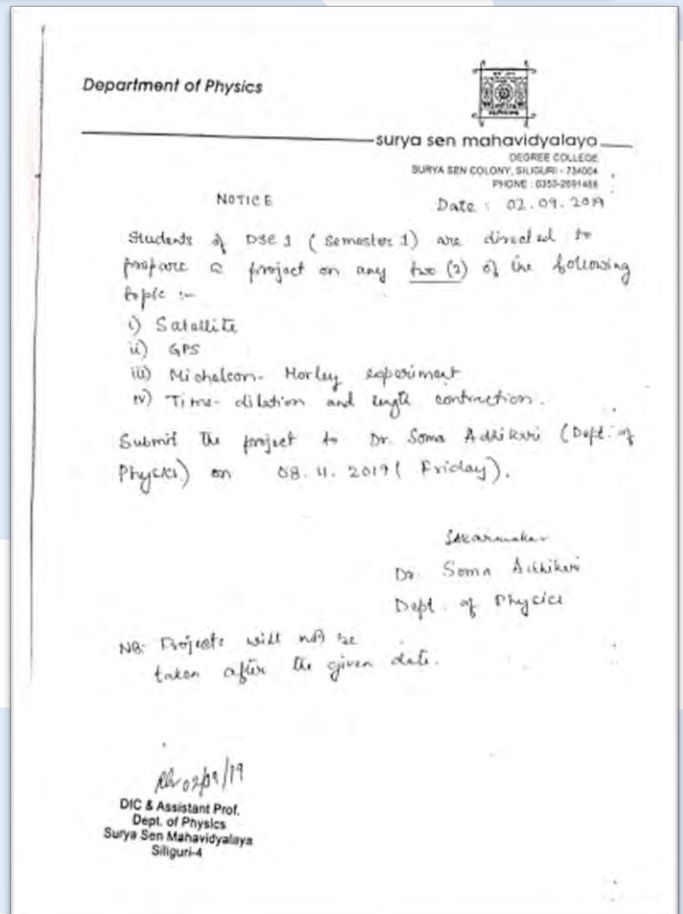 Department of Physics
surya sen mahavidyalaya
DEGREE COLLEGE
SURYA SEN COLONY, SILIGURI - 734004
PHONE : 0353-2691488
NOTICE
Date : 02.09.2019
Students of DSE 1 (Semester 1) are directed to
prepare a project on any two (2) of the following
topic :-
i) Satallite
ii) GPS
iii) Michelson-Morley experiment
iv) Time-dilation and length contraction.
Submit the project to Dr. Soma Adhikari (Dept. of
Physics) on 08.11.2019 (Friday).
Dr. Soma Adhikari
Dept. of Physics
NB: Projects will not be
taken after the given date.
02/09/19
DIC & Assistant Prof.
Dept. of Physics
Surya Sen Mahavidyalaya
Siliguri-4